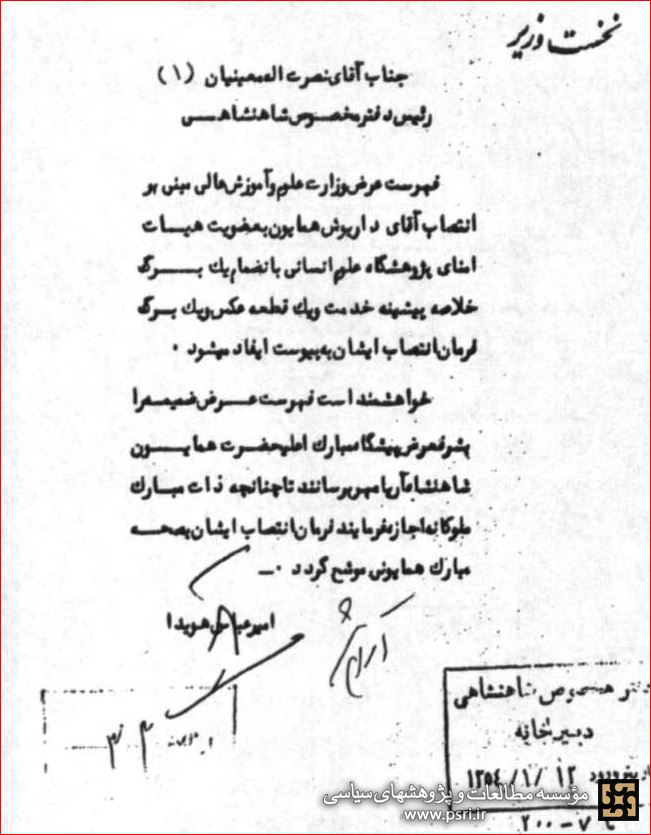 نخست وزیر
جناب آقای نصرت اله معینیان (۱)
رئیس دفتر مخصوص شاهنشاهی
فهرست عرض وزارت علوم و آموزش عالی مبنی بر
انتصاب آقای داریوش همایون بعضویت هیات
امنای پژوهشگاه علوم انسانی بانضمام یک برگ
خلاصه پیشینه خدمت ویک قطعه عکس ویک برگ
فرمان انتصاب ایشان به پیوست ایفاد میشود ۰
خواهشمند است فهرست عرض ضمیمه را
بشرفعرض پیشگاه مبارک اعلیحضرت همایون
شاهنشاه آریامهر برسانند تا چنانچه ذات مبارک
ملوکانه اجازه فرمایند فرمان انتصاب ایشان بصحه
مبارک همایونی موشح گردد ۰ـ
امیرعباس هویدا
دفتر مخصوص شاهنشاهی
دبیرخانه
تاریخ ورود ۱۳۵۴/۱/۱۲
۲۰۰-۷
مؤسسه مطالعات و پژوهشهای سیاسی
www.psri.ir